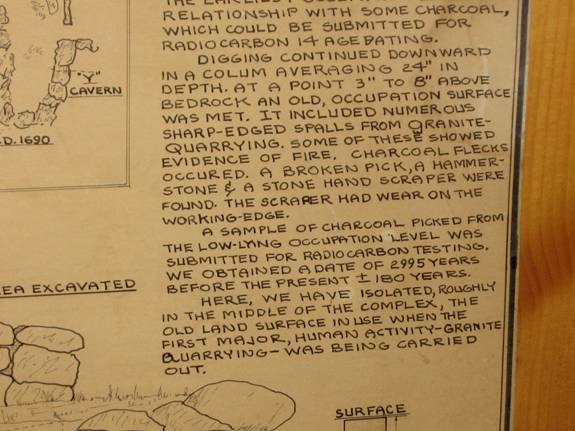 THE EARLIEST
RELATIONSHIP WITH SOME CHARCOAL,
WHICH COULD BE SUBMITTED FOR
RADIOCARBON 14 AGE DATING.
DIGGING CONTINUED DOWNWARD
IN A COLUM AVERAGING 24" IN
DEPTH. AT A POINT 3" TO 8" ABOVE
BEDROCK AN OLD, OCCUPATION SURFACE
WAS MET. IT INCLUDED NUMEROUS
SHARP-EDGED SPALLS FROM GRANITE-
QUARRYING. SOME OF THESE SHOWED
EVIDENCE OF FIRE. CHARCOAL FLECKS
OCCURED. A BROKEN PICK, A HAMMER-
STONE & A STONE HAND SCRAPER WERE
FOUND. THE SCRAPER HAD WEAR ON THE
WORKING-EDGE.
A SAMPLE OF CHARCOAL PICKED FROM
THE LOW-LYING OCCUPATION LEVEL WAS
SUBMITTED FOR RADIOCARBON TESTING.
WE OBTAINED A DATE OF 2995 YEARS
BEFORE THE PRESENT ± 180 YEARS.
HERE, WE HAVE ISOLATED, ROUGHLY
IN THE MIDDLE OF THE COMPLEX, THE
OLD LAND SURFACE IN USE WHEN THE
FIRST MAJOR, HUMAN ACTIVITY-GRANITE
QUARRYING-WAS BEING CARRIED
OUT.
"Y"
CAVERN
D. 1690
EA EXCAVATED
SURFACE